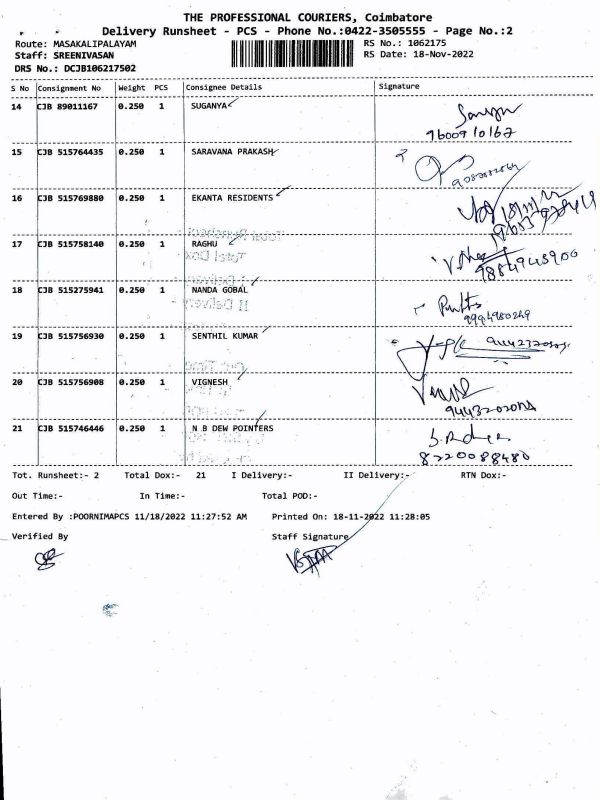 THE PROFESSIONAL COURIERS, Coimbatore
Delivery Runsheet - PCS - Phone No.:0422-3505555 - Page No.:2
Route: MASAKALIPALAYAM RS No.: 1062175
Staff: SREENIVASAN RS Date: 18-Nov-2022
DRS No.: DCJB106217502
S No Consignment No Weight PCS Consignee Details Signature
14 CJB 89011167 0.250 1 SUGANYA
9600910162
15 CJB 515764435 0.250 1 SARAVANA PRAKASH
16 CJB 515769880 0.250 1 EKANTA RESIDENTS
17 CJB 515758140 0.250 1 RAGHU
9884945900
18 CJB 515275941 0.250 1 NANDA GOBAL
19 CJB 515756930 0.250 1 SENTHIL KUMAR
20 CJB 515756908 0.250 1 VIGNESH
21 CJB 515746446 0.250 1 N B DEW POINTERS
8220088480
Tot. Runsheet:- 2 Total Dox:- 21 I Delivery:- II Delivery:- RTN Dox:-
Out Time:- In Time:- Total POD:-
Entered By :POORNIMAPCS 11/18/2022 11:27:52 AM Printed On: 18-11-2022 11:28:05
Verified By Staff Signature